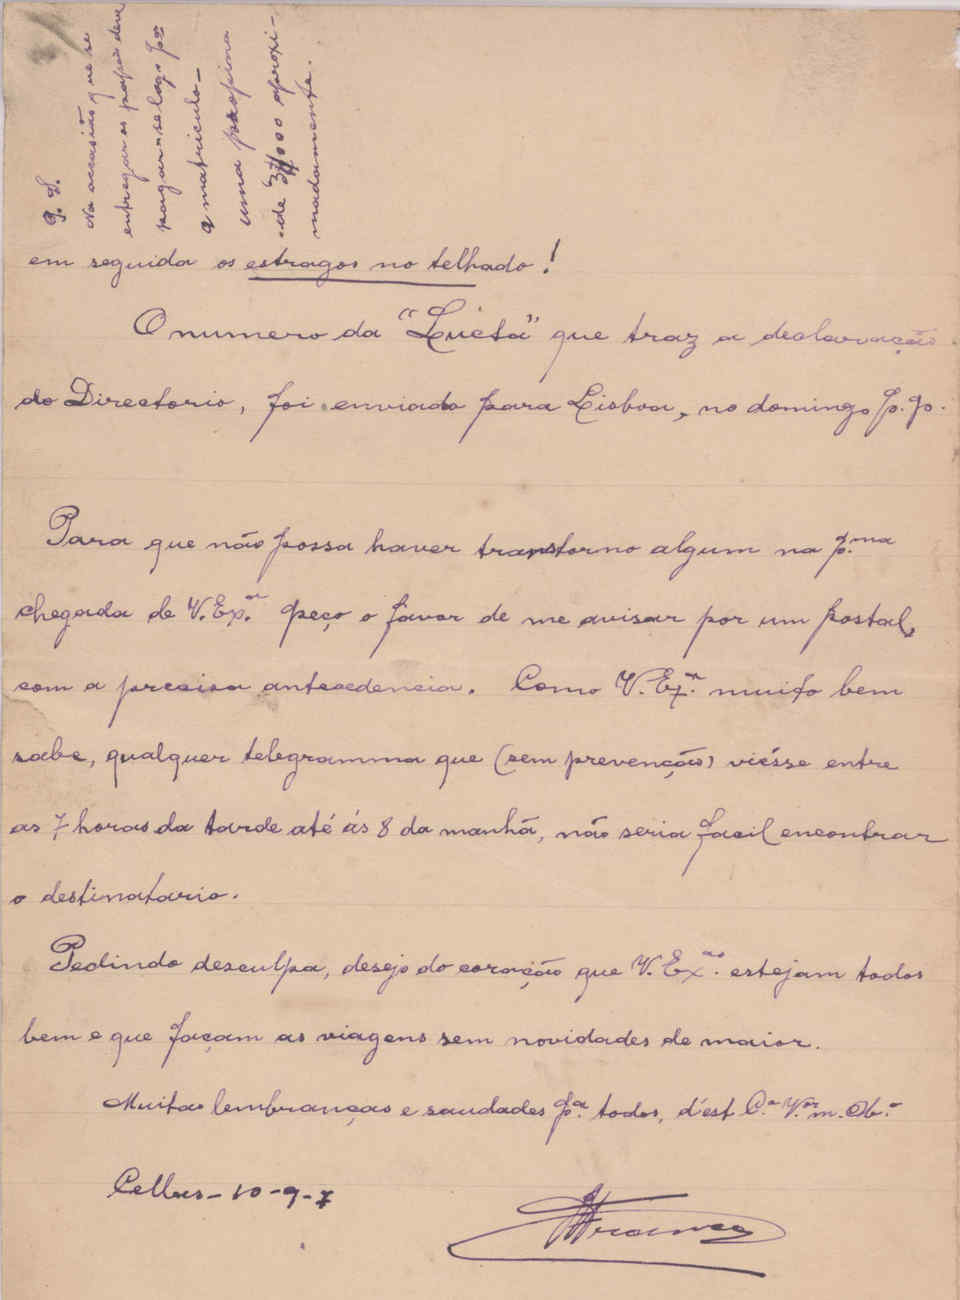 P. S.
Na occasião que se
entregar os papeis deve
pagar-se logo pa
a matricula -
uma propina
de 3#000 aproxi-
madamente.
em seguida os estragos no telhado!
O numero da "Lucta" que traz a declaração
do Directorio, foi enviado para Lisboa, no domingo p. p.
Para que não possa haver transtorno algum na p.ma
chegada de V. Ex.as peço o favor de me avisar por um postal,
com a precisa antecedencia. Como V. Ex.as muito bem
sabe, qualquer telegramma que (sem prevenção) viésse entre
as 7 horas da tarde até ás 8 da manhã, não seria facil encontrar
o destinatario.
Pedindo desculpa, desejo do coração que V. Ex.as estejam todos
bem e que façam as viagens sem novidades de maior.
Muitas lembranças e saudades pa. todos, d'est C.o V.or m. Ob.o
10-9-7